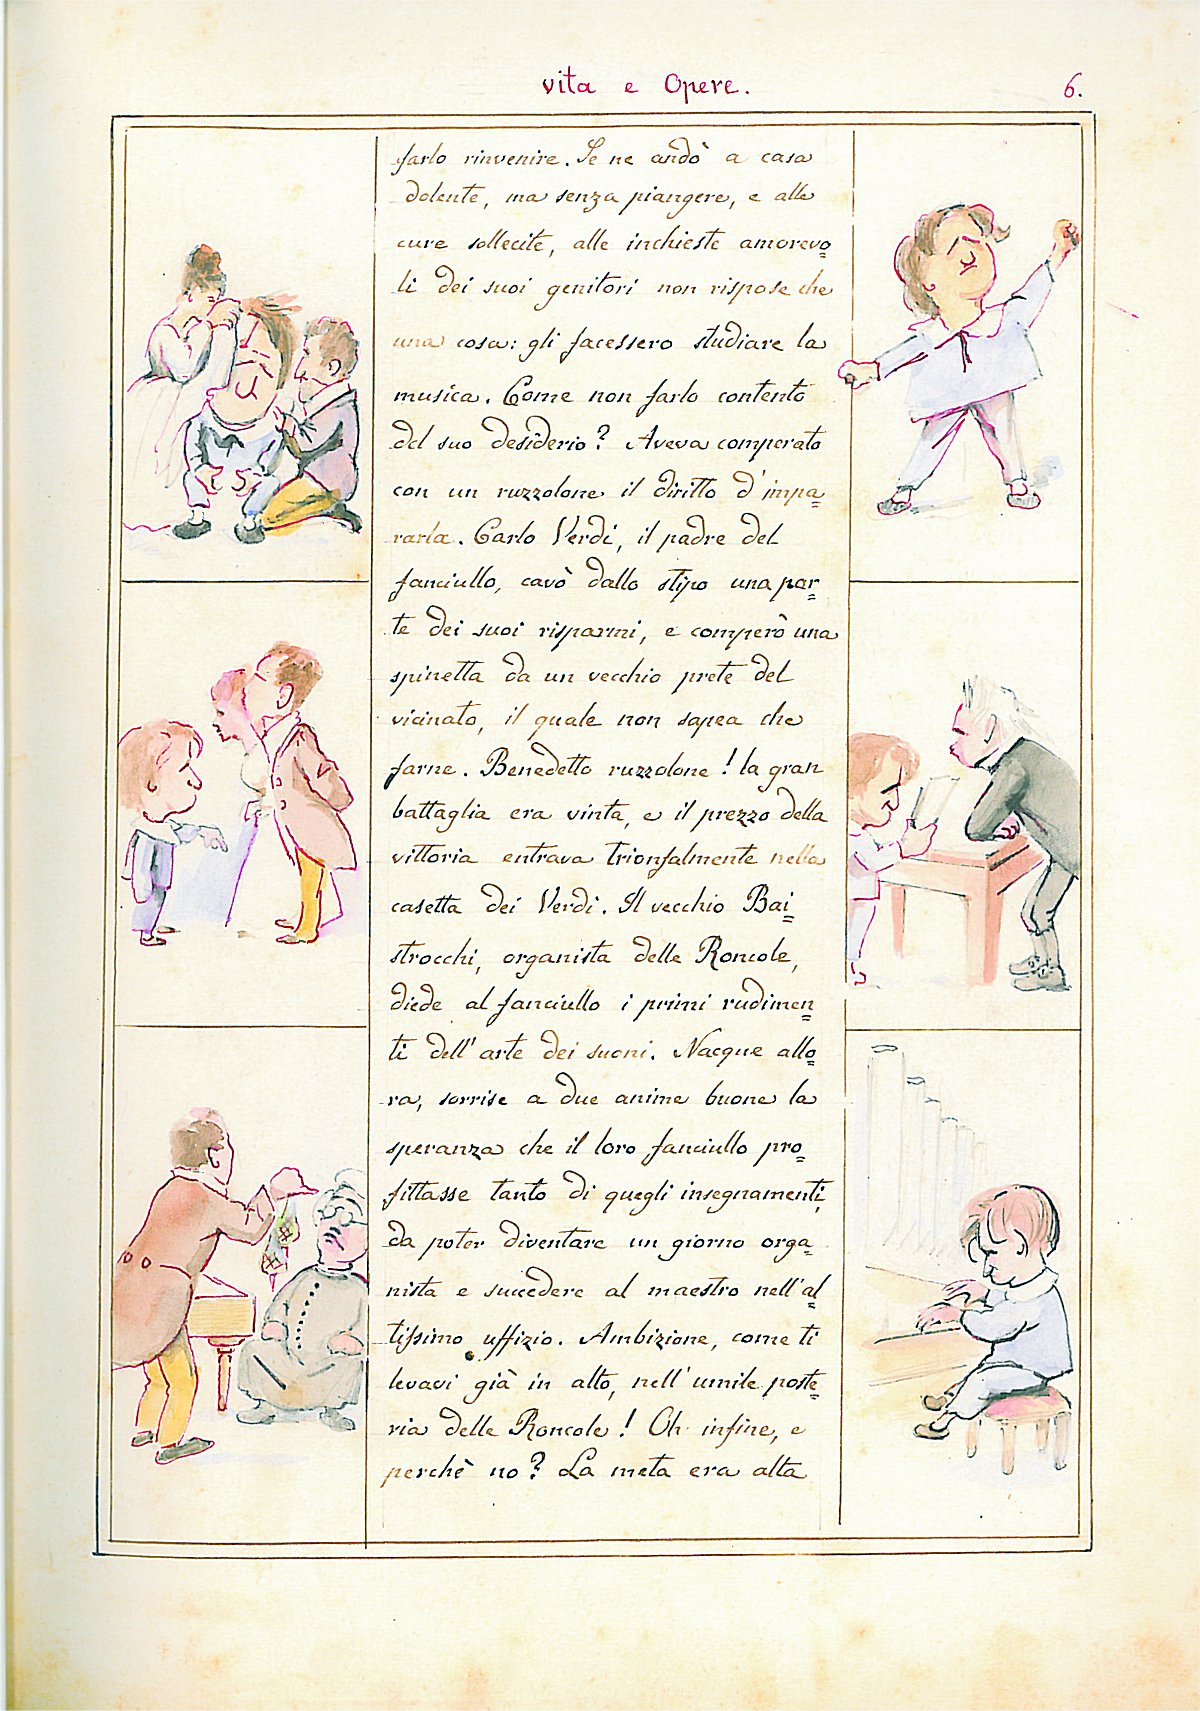 Vita e Opere.
6.
farlo rinvenire. Se ne andò a casa
dolente, ma senza piangere, e alle
cure sollecite, alle inchieste amorevo=
li dei suoi genitori non rispose che
una cosa: gli facessero studiare la
musica. Come non farlo contento
del suo desiderio? Aveva comperato
con un ruzzolone il diritto d'impa=
rarla. Carlo Verdi, il padre del
fanciullo, cavò dallo stipo una par=
te dei suoi risparmi, e comperò una
spinetta da un vecchio prete del
vicinato, il quale non sapea che
farne. Benedetto ruzzolone! la gran
battaglia era vinta, e il prezzo della
vittoria entrava trionfalmente nella
casetta dei Verdi. Il vecchio Bai=
strocchi, organista delle Roncole,
diede al fanciullo i primi rudimen=
ti dell'arte dei suoni. Nacque allo=
ra, sorrise a due anime buone la
speranza che il loro fanciullo pro=
fittasse tanto di quegli insegnamenti,
da poter diventare un giorno orga=
nista e succedere al maestro nell'al=
tissimo uffizio. Ambizione, come ti
levavi già in alto, nell'umile poste=
ria delle Roncole! Oh infine, e
perchè no? La meta era alta